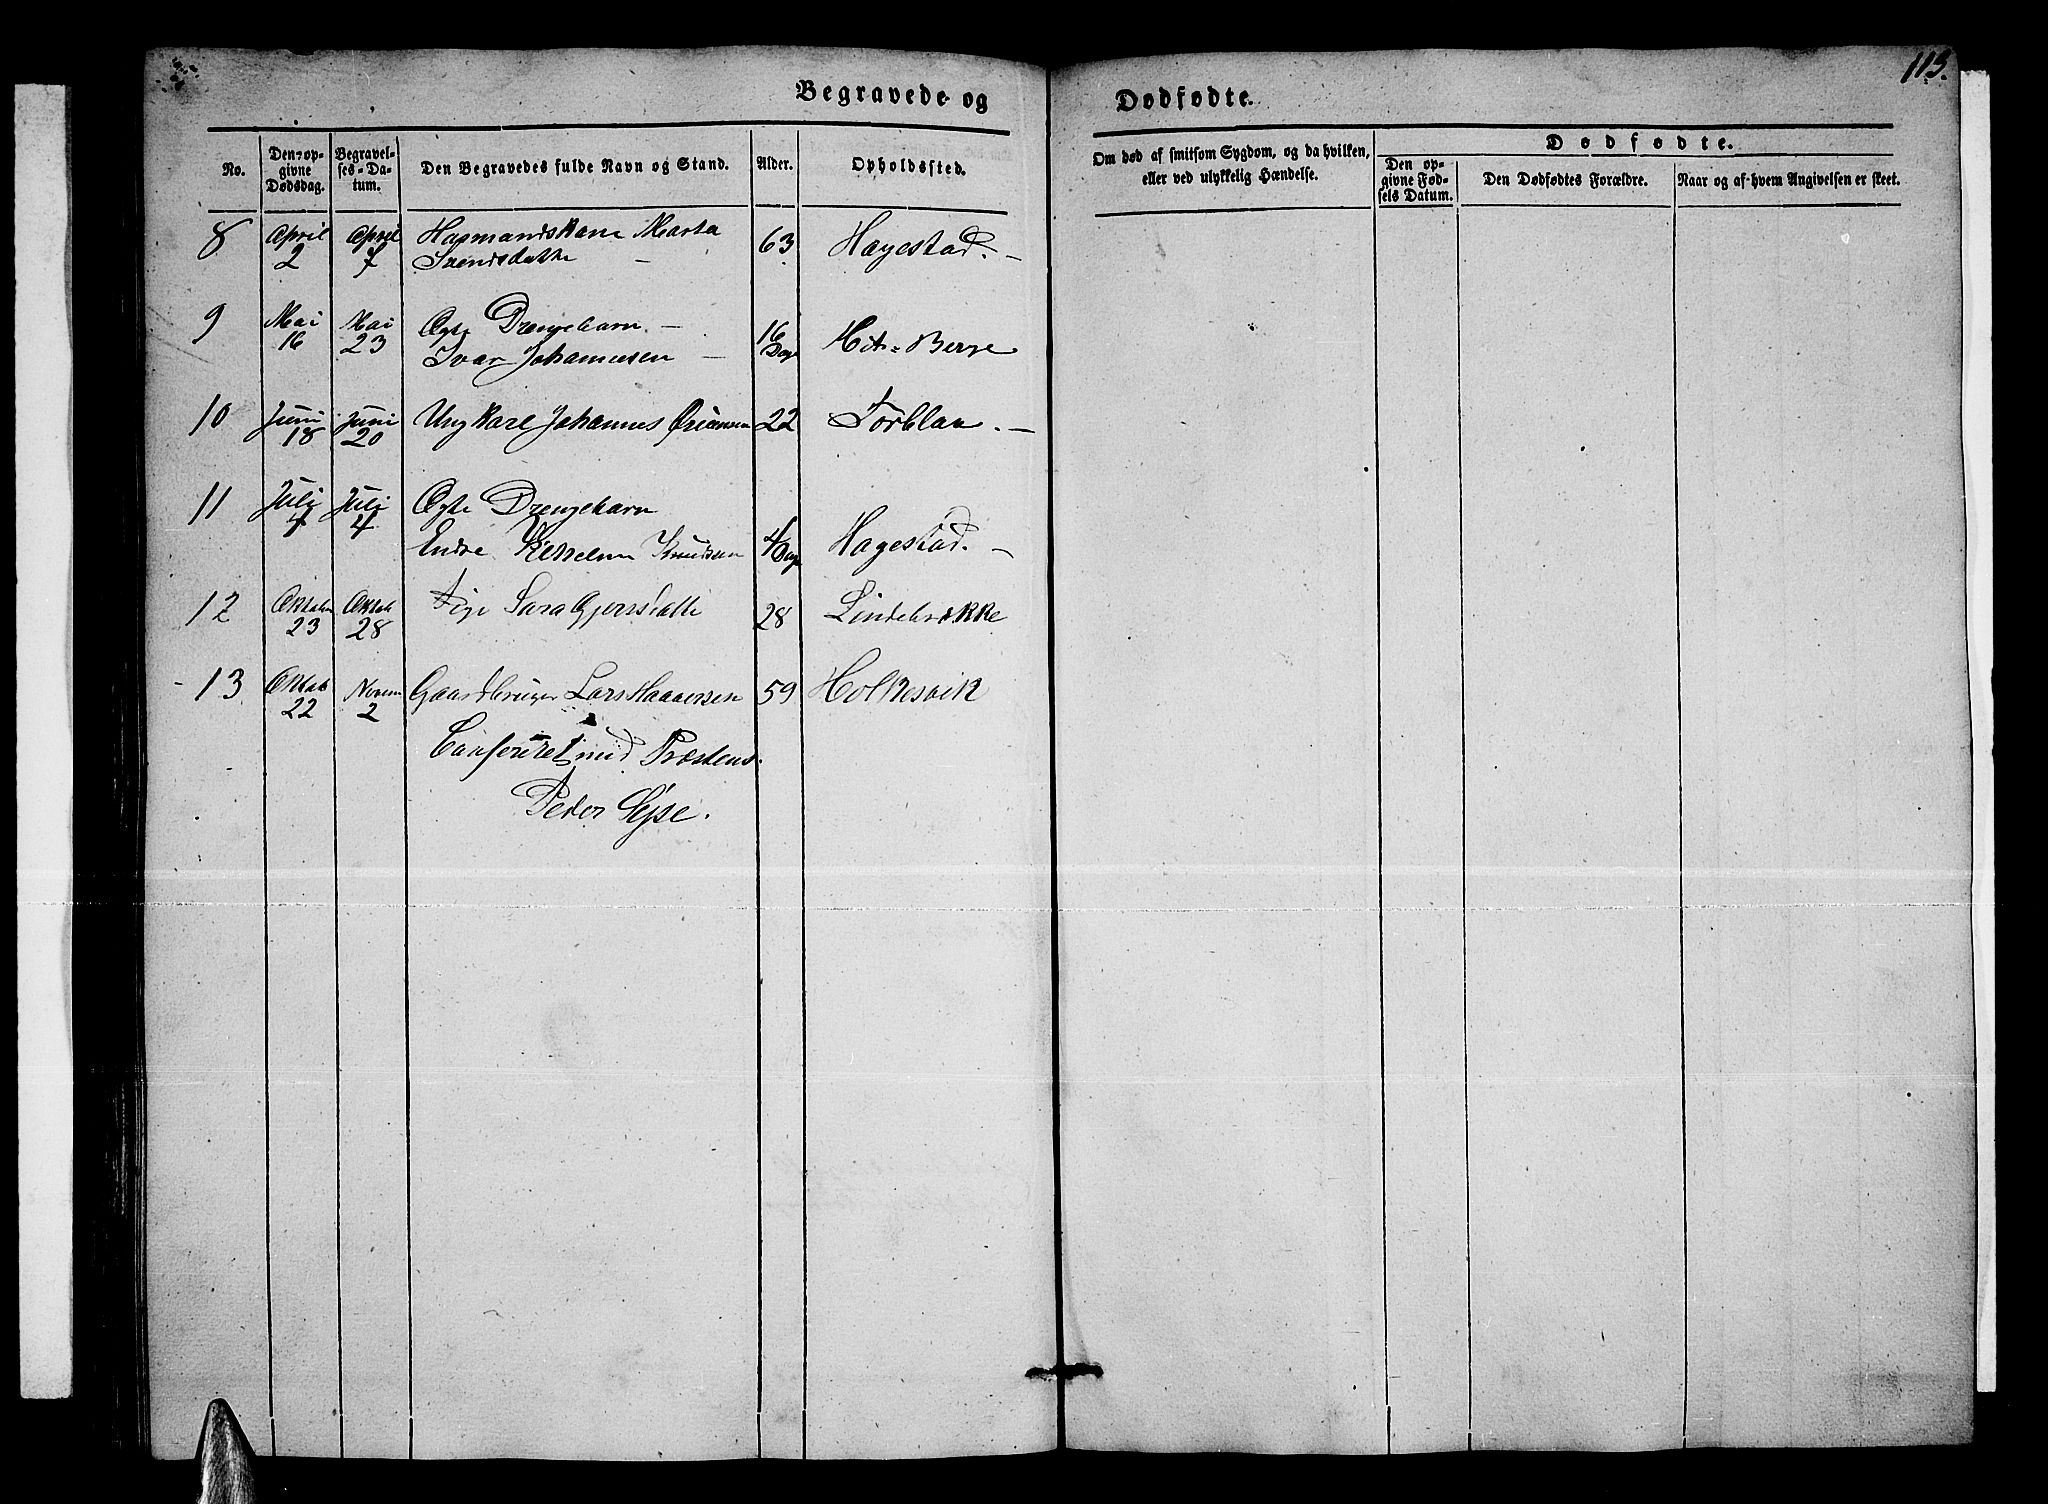 113.
Begravede og Dødfødte.
No.
Den opgivne Dødsdag.
Begravelses-Datum.
Den Begravedes fulde Navn og Stand.
Alder.
Opholdssted.
Om død af smitsom Sygdom, og da hvilken, eller ved ulykkelig Hændelse.
Dødfødte.
Den opgivne Fødsels Datum.
Den Dødfødtes Forældre.
Naar og af hvem Angivelsen er skeet.
8 April 2 April 7 Husmandskone Marta 63 Hagestad. —
Svendsdatter —
9 Mai 16 Mai 23 Ægte Drengebarn — 16 Dage Berge
Ivar Johannesen —
10 Juni 18 Juni 20 Ungkarl Johannes 22 Torblaa. —
11 Juli 4 Juli 4 Ægte Drengebarn
Endre Knudsen 4 Dage Hagestad. —
12 Oktober 23 Oktob 28 Pige Sara 28 Lindebrække
13 Oktob 22 Novem 2 Gaardbruger Lars Haaversen 59 Holkesvik
Confereret med Præstens.
Peder